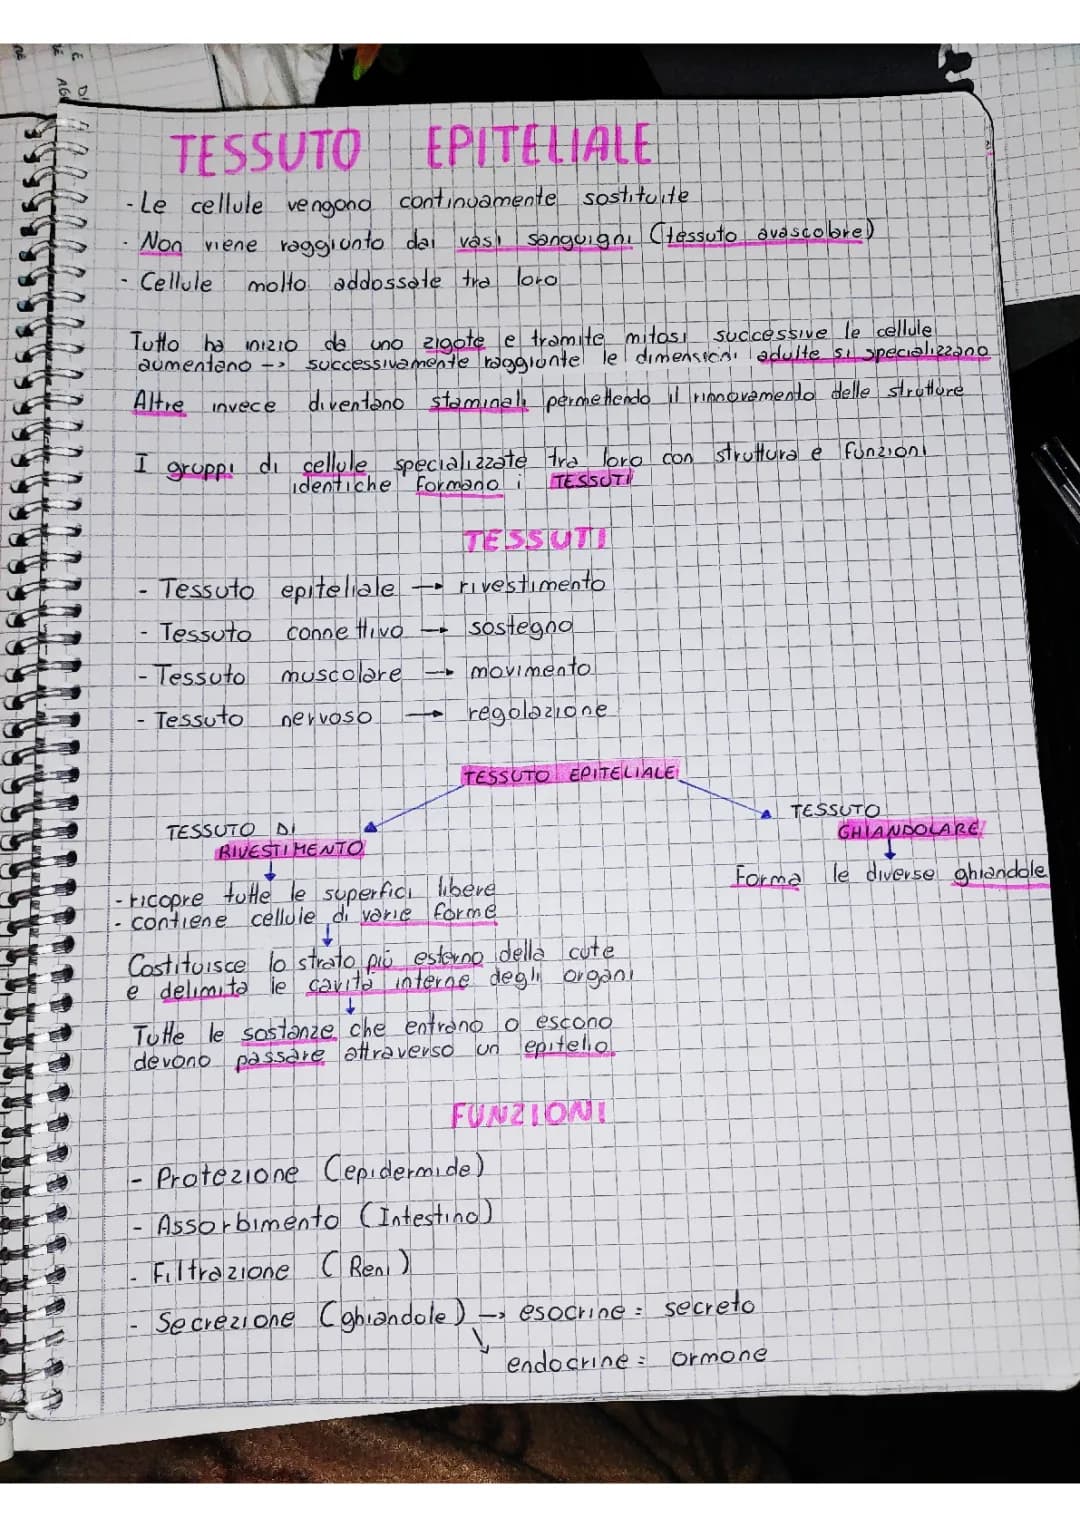 TESSUTO EPITELIALE
- Le cellule vengono continuamente sostituite
- Non viene raggiunto dai vasi sanguigni (tessuto avascolare)
- Cellule molto addossate tra loro
Tutto ha inizio da uno zigote e tramite mitosi successive le cellule
aumentano -> successivamente raggiunte le dimensioni adulte si specializzano
Altre invece diventano staminali permettendo il rinnovamento delle strutture
I gruppi di cellule specializzate tra loro con struttura e funzioni
identiche formano i TESSUTI
TESSUTI
- Tessuto epiteliale → rivestimento
- Tessuto connettivo → sostegno
- Tessuto muscolare → movimento
- Tessuto nervoso → regolazione
TESSUTO EPITELIALE
TESSUTO DI
RIVESTIMENTO
- ricopre tutte le superfici libere
- contiene cellule di varie forme
Costituisce lo strato più esterno della cute
e delimita le cavità interne degli organi
Tutte le sostanze che entrano o escono
devono passare attraverso un epitelio
TESSUTO
GHIANDOLARE
Forma le diverse ghiandole
FUNZIONI
- Protezione (epidermide)
- Assorbimento (Intestino)
- Filtrazione (Reni)
- Secrezione (ghiandole) → esocrine = secreto
endocrine = ormone